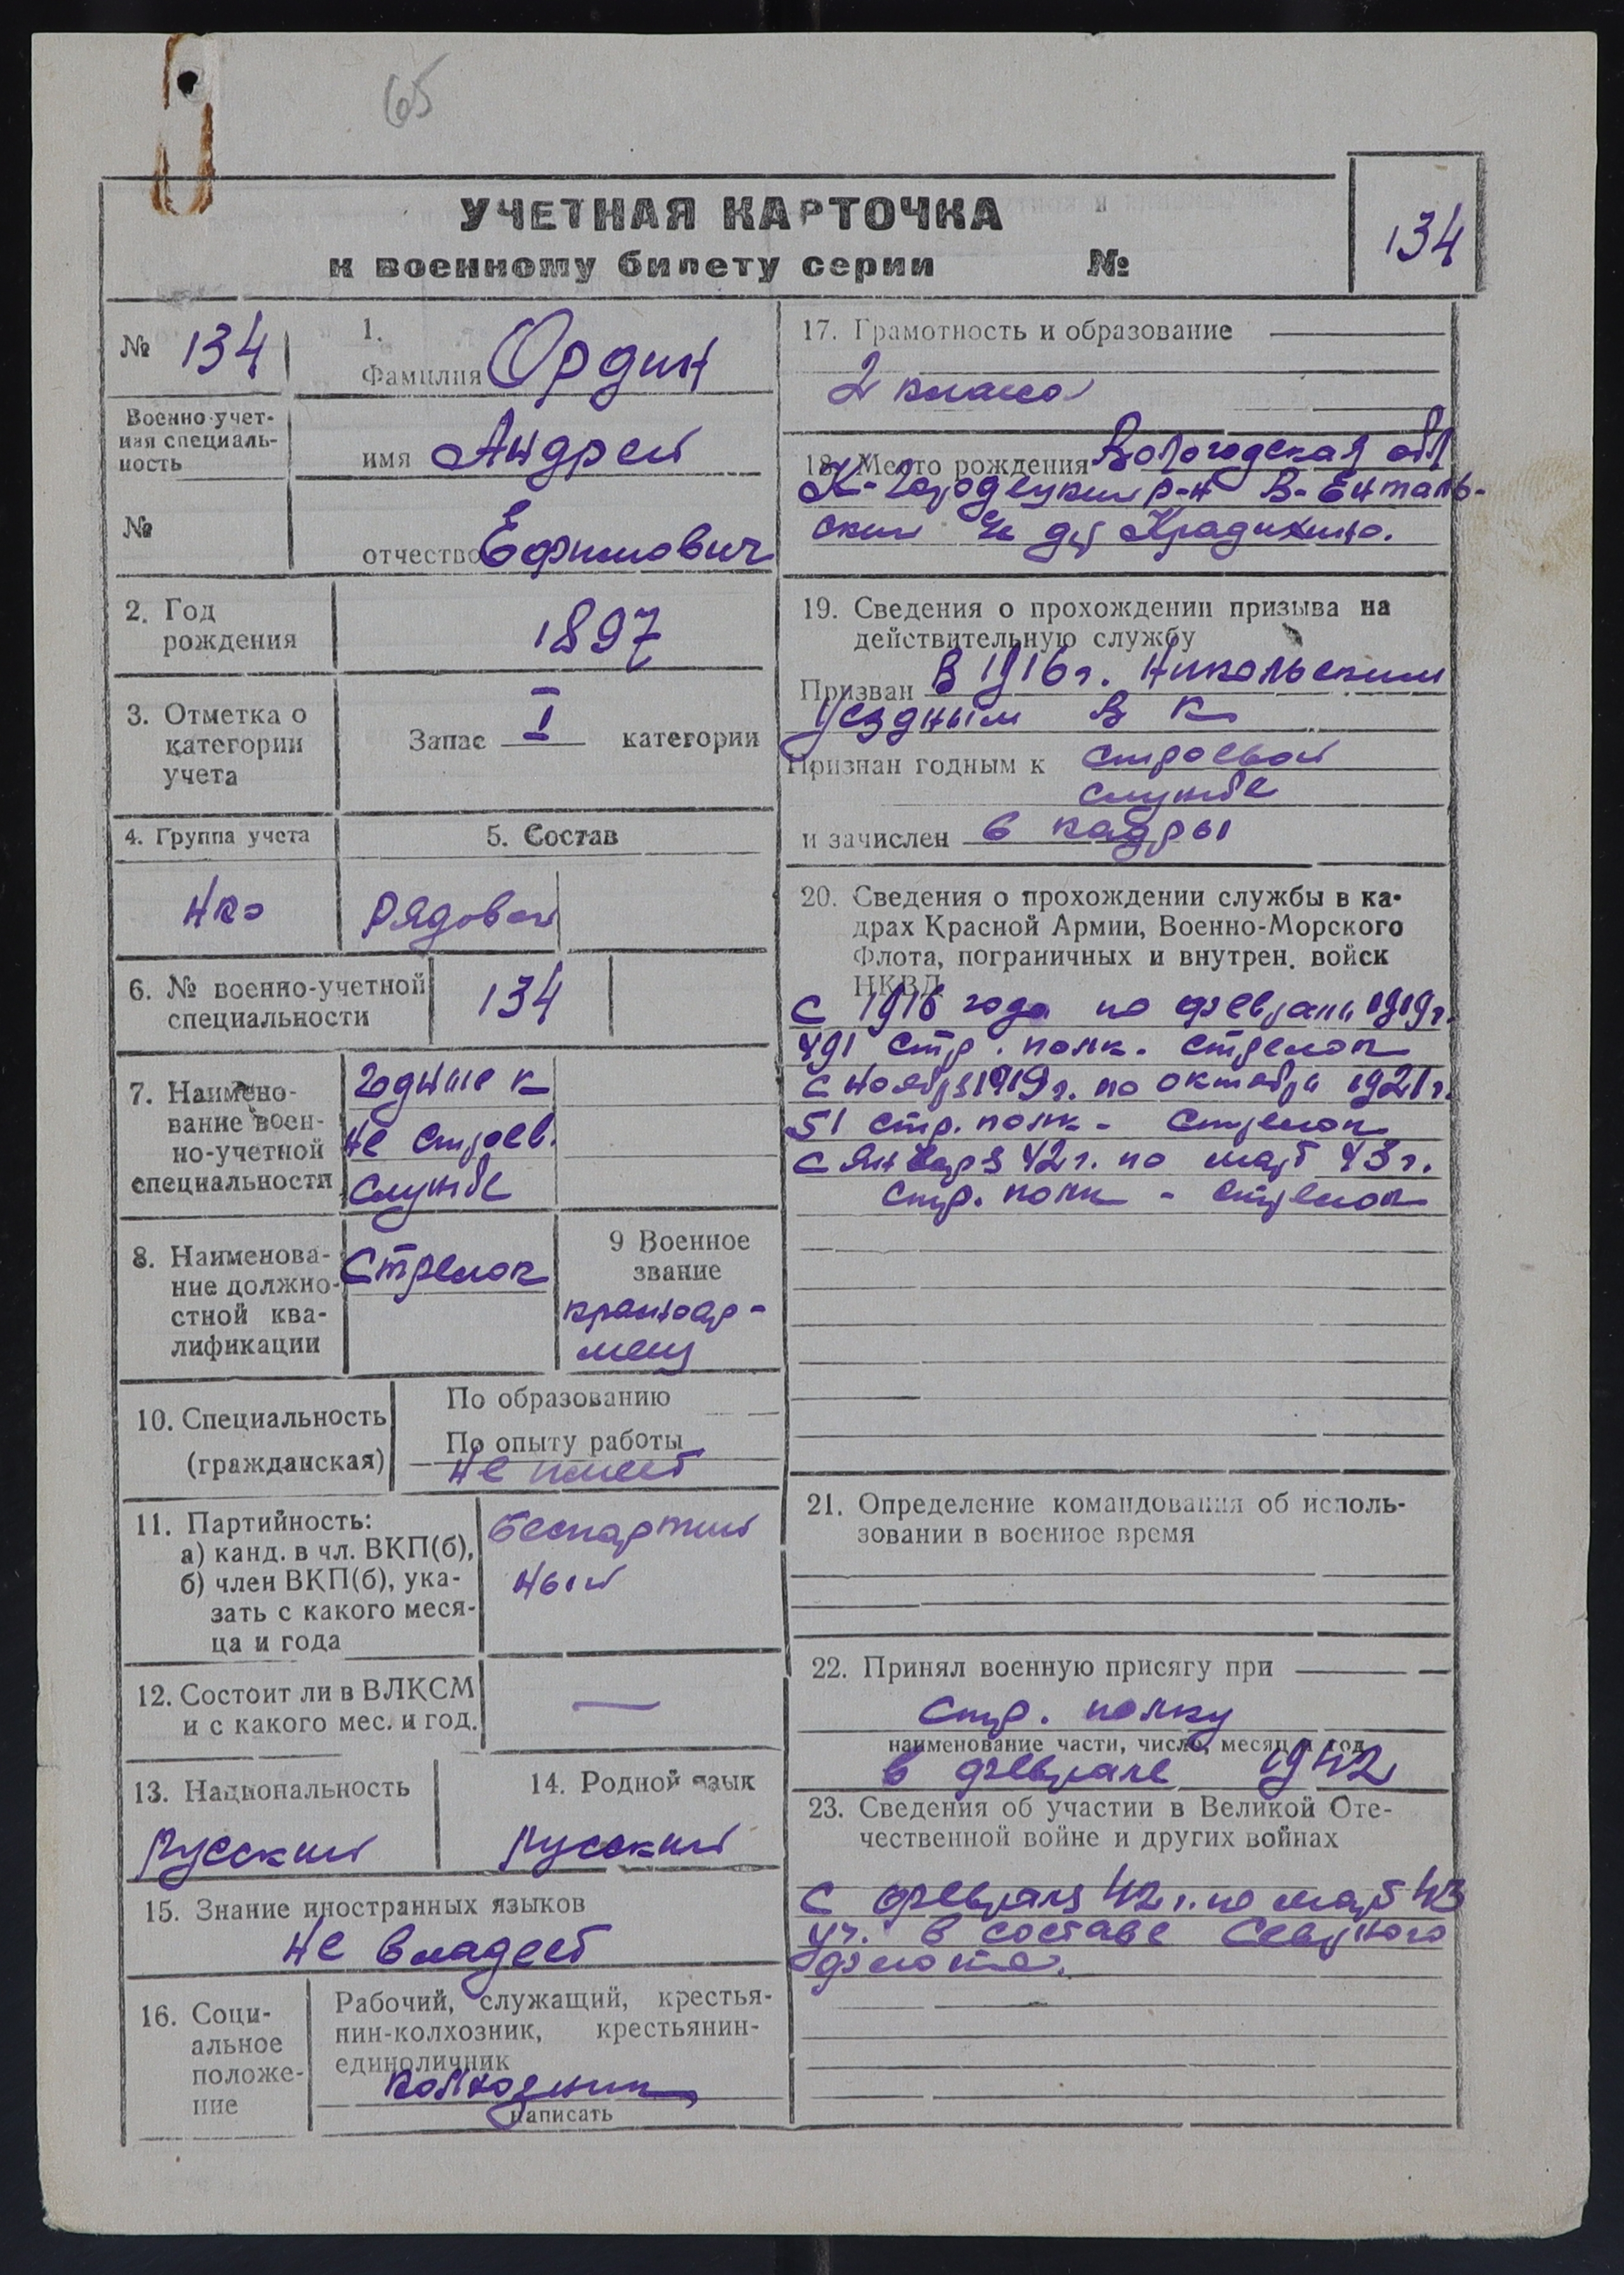 65
УЧЕТНАЯ КАРТОЧКА
к военному билету серии №
134
№ 134
1.
Фамилия Ордин
Военно-учет-
ная специаль-
ность
имя Андрей
№
отчество Ефимович
2. Год
рождения
1897
3. Отметка о
категории
учета
Запас I категории
4. Группа учета
5. Состав
НКО
Рядовой
6. № военно-учетной
специальности
134
7. Наимено-
вание воен-
но-учетной
специальности
годные к
не строев.
службе
8. Наименова-
ние должно-
стной ква-
лификации
Стрелок
9 Военное
звание
красноар-
меец
10. Специальность
(гражданская)
По образованию
По опыту работы
не имеет
11. Партийность:
а) канд. в чл. ВКП(б),
б) член ВКП(б), ука-
зать с какого меся-
ца и года
беспартий
ный
12. Состоит ли в ВЛКСМ
и с какого мес. и год.
—
13. Национальность
русский
14. Родной язык
русский
15. Знание иностранных языков
не владеет
16. Соци-
альное
положе-
ние
Рабочий, служащий, крестья-
нин-колхозник, крестьянин-
единоличник
колхозник
написать
17. Грамотность и образование
2 класса
18. Место рождения Вологодская обл
К-Городецкий р-н В-Енталь-
ский с/с д.
19. Сведения о прохождении призыва на
действительную службу
Призван в 1916 г. Никольским
уездным В К
Признан годным к строевой
службе
и зачислен в кадры
20. Сведения о прохождении службы в ка-
драх Красной Армии, Военно-Морского
Флота, пограничных и внутрен. войск
НКВД
с 1916 года по февраль 1919 г.
491 стр. полк. стрелок
с ноября 1919 г. по октябрь 1921 г.
51 стр. полк - стрелок
с января 42 г. по март 43 г.
стр. полк - стрелок
21. Определение командования об исполь-
зовании в военное время
22. Принял военную присягу при
стр. полку
наименование части, число, месяц и год
в феврале 1942
23. Сведения об участии в Великой Оте-
чественной войне и других войнах
С февраля 42 г. по март 43
уч. в составе Северного
флота.